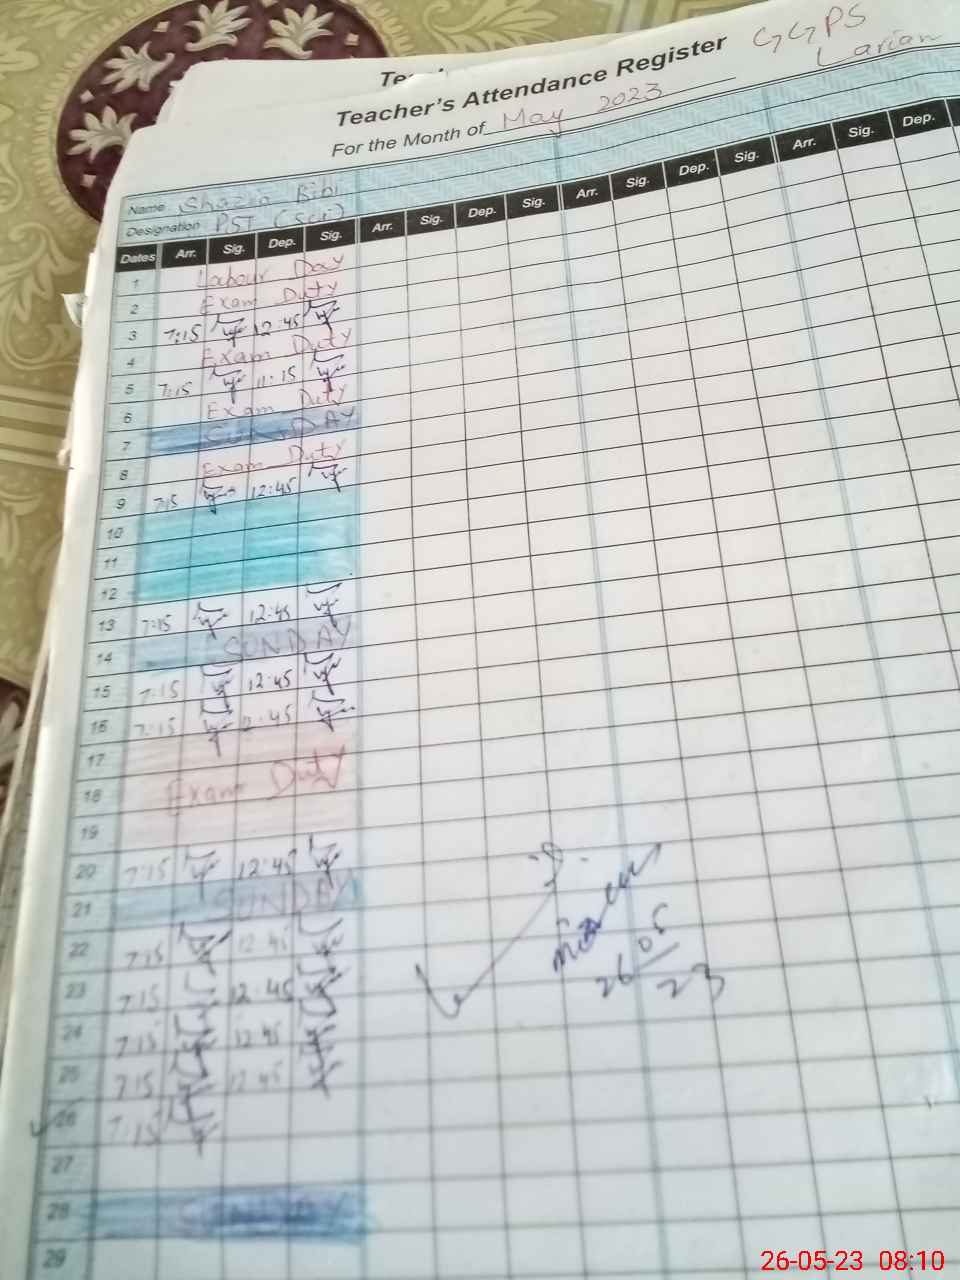 GGPS
Teacher's Attendance Register
Larian
For the Month of May 2023
Name Shazia Bibi
Designation PST (Sci)
Dates Arr. Sig. Dep. Sig. Arr. Sig. Dep. Sig. Arr. Sig. Dep. Sig. Arr. Sig. Dep.
1 Labour Day
2 Exam Duty
3 7:15 12:45
4 Exam Duty
5 7:15 11:15
6 Exam Duty
7 SUNDAY
8 Exam Duty
9 7:15 12:45
10
11
12
13 7:15 12:45
14 SUNDAY
15 7:15 12:45
16 7:15 12:45
17
18 Exam Duty
19
20 7:15 12:45
21 SUNDAY
22 7:15 12:45
23 7:15 12:45
24 7:15 12:45
25 7:15 12:45
26 7:15
27
28 SUNDAY
29
26 05
23
26-05-23 08:10